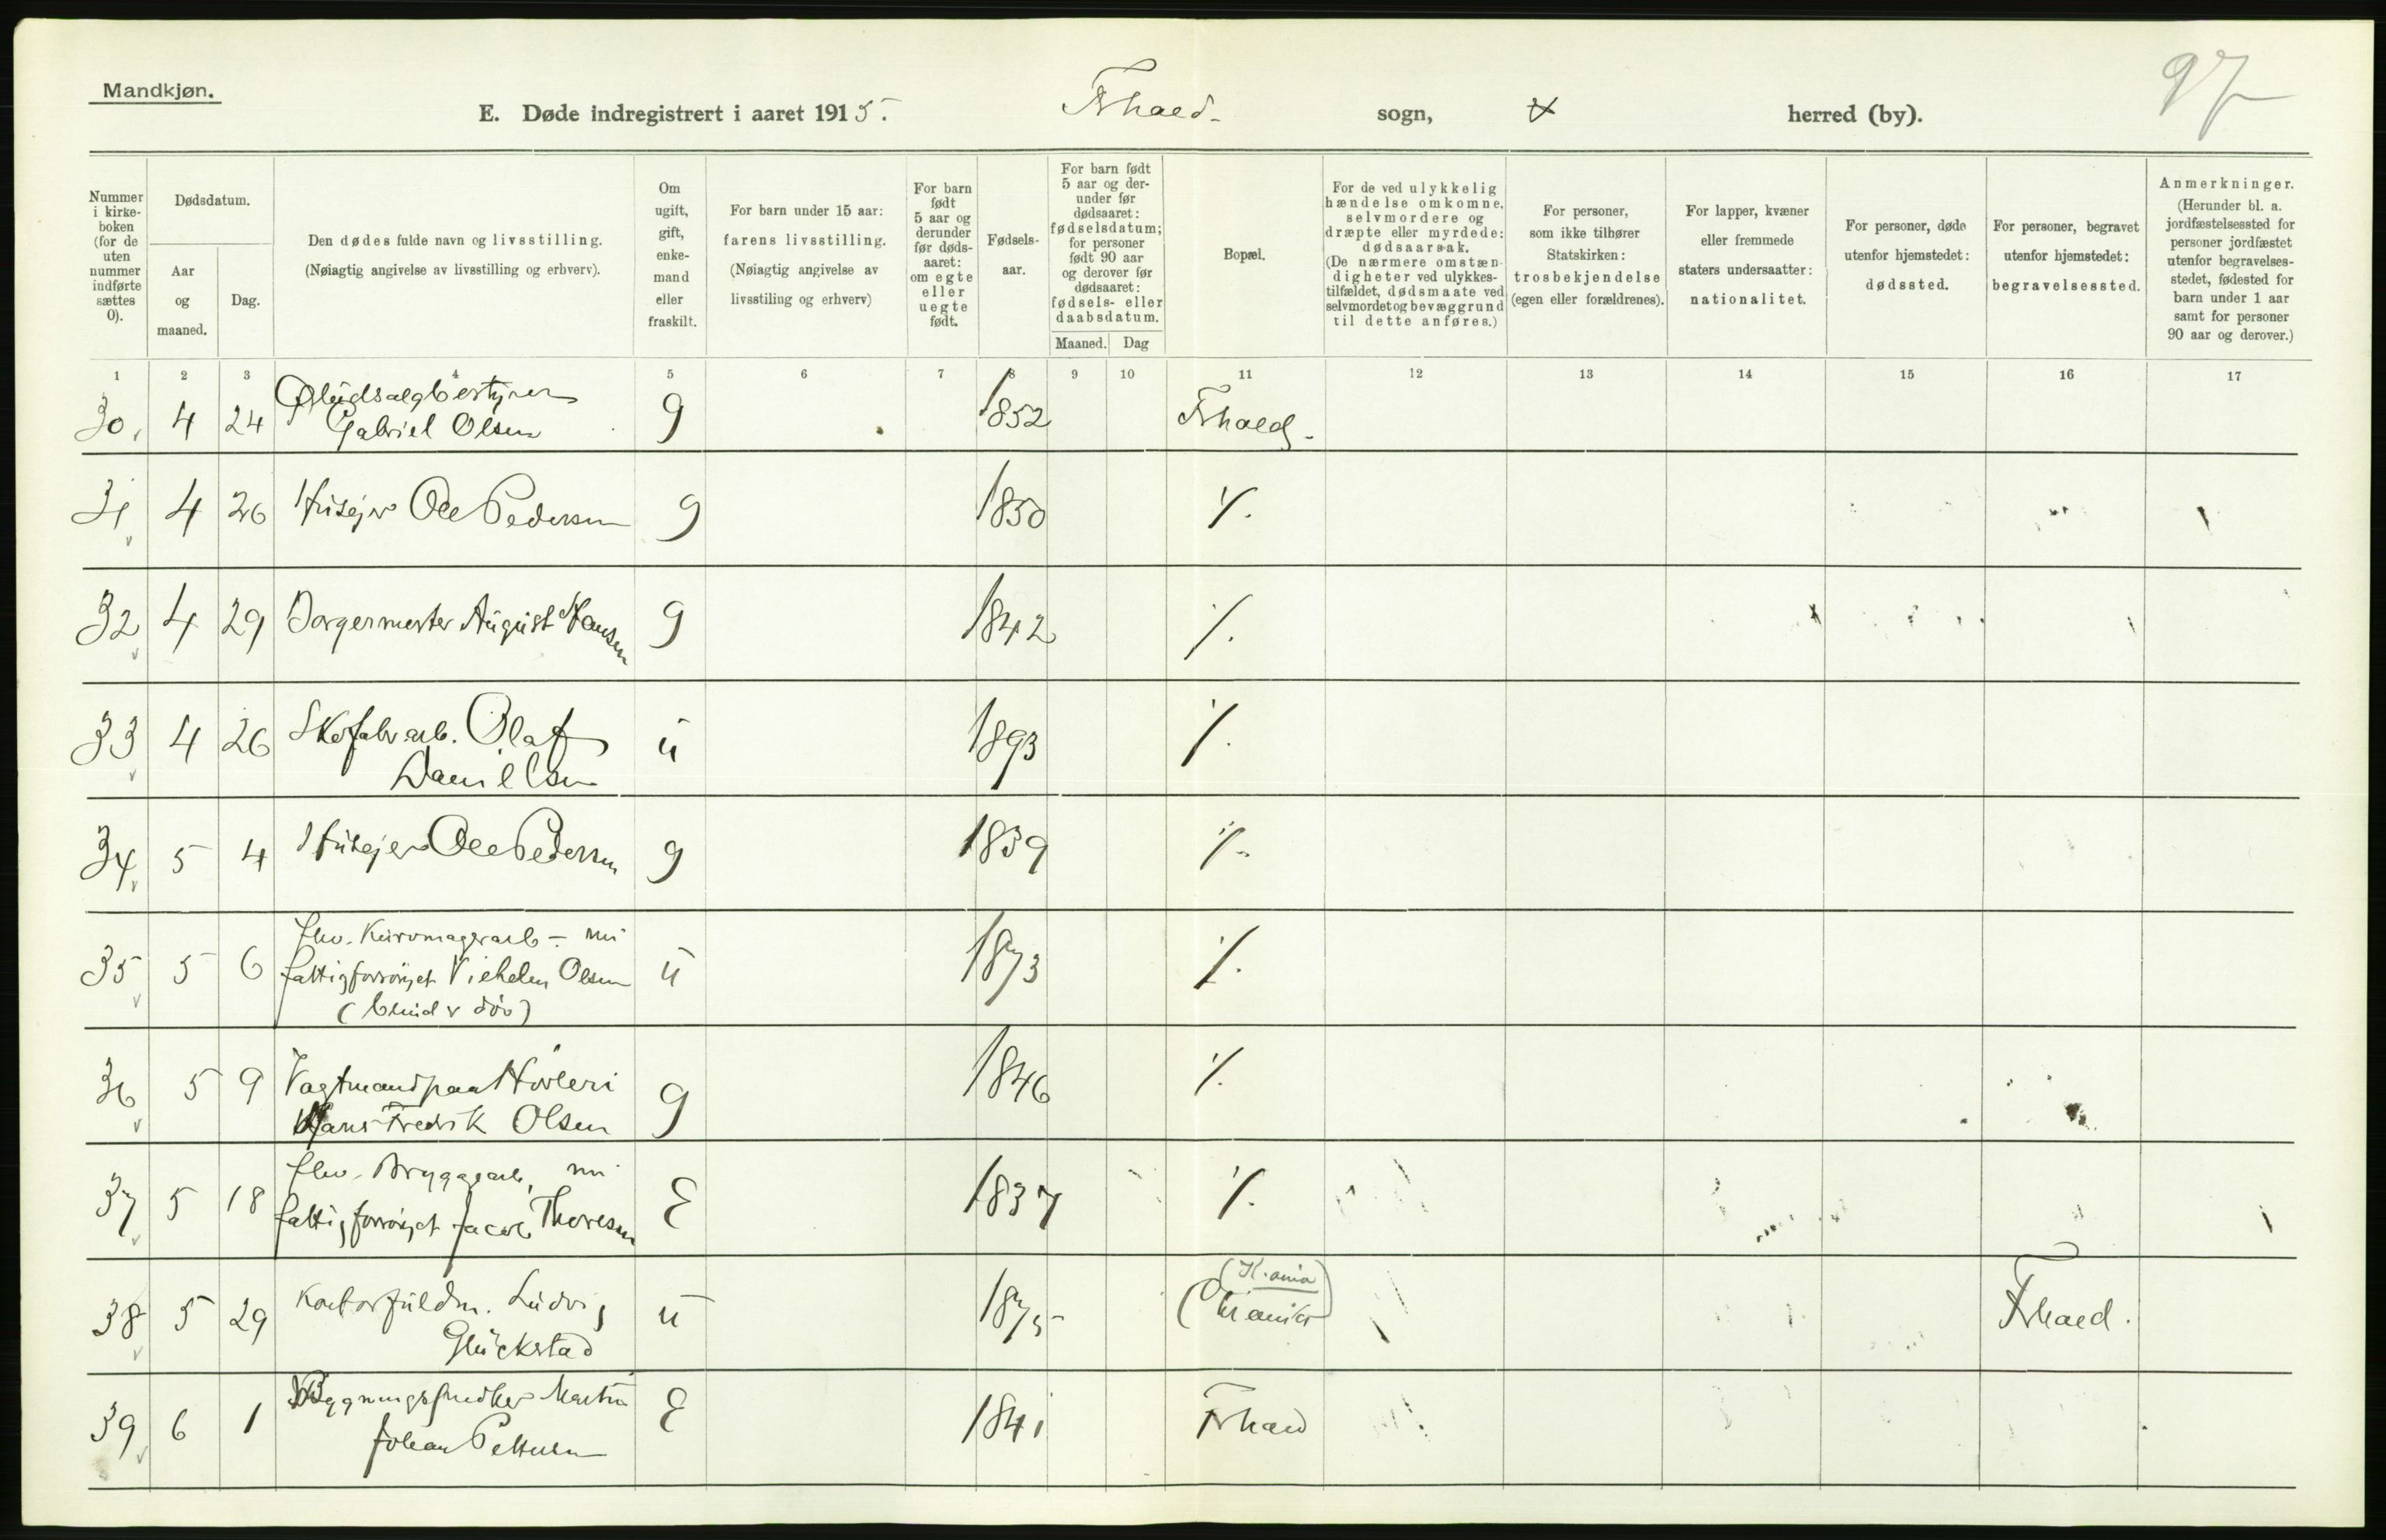 Mandkjøn.
97
E. Døde indregistrert i aaret 1915. Frhald. sogn, herred (by).
Nummer i kirke- boken (for de uten nummer indførte sættes 0).
Dødsdatum.
Aar og maaned.
Dag.
Den dødes fulde navn og livsstilling.
(Nøiagtig angivelse av livsstilling og erhverv).
Om ugift, gift, enke- mand eller fraskilt.
For barn under 15 aar: farens livsstilling.
(Nøiagtig angivelse av livsstiling og erhverv)
For barn født 5 aar og derunder før døds- aaret: om egte eller uegte født.
Fødsels- aar.
For barn født 5 aar og der- under før dødsaaret: fødselsdatum; for personer født 90 aar og derover før dødsaaret: fødsels- eller daabsdatum.
Maaned. Dag
Bopæl.
For de ved ulykkelig hændelse omkomne, selvmordere og dræpte eller myrdede: dødsaarsak.
(De nærmere omstæn- digheter ved ulykkes- tilfældet, dødsmaate ved selvmordet og bevæggrund til dette anføres.)
For personer, som ikke tilhører Statskirken: trosbekjendelse (egen eller forældrenes).
For lapper, kvæner eller fremmede staters undersaatter: nationalitet.
For personer, døde utenfor hjemstedet: dødssted.
For personer, begravet utenfor hjemstedet: begravelsessted.
Anmerkninger.
(Herunder bl. a. jordfæstelsessted for personer jordfæstet utenfor begravelses- stedet, fødested for barn under 1 aar samt for personer 90 aar og derover.)
1 2 3 4 5 6 7 8 9 10 11 12 13 14 15 16 17
30 4 24 Gabriel Olsen g 1852 Frhald.
31 4 26 Husejer Ole Pedersen g 1850 ·/.
32 4 29 Borgermester August Hansen g 1842 ·/.
33 4 26 Skofabr arb. Olaf
Danielsen u 1893 ·/.
34 5 4 Husejer Ole Pedersen g 1839 ·/.
35 5 6 fhv. Kurvmagerarb - nu
fattigforsörget Vilhelm Olsen u 1873 ·/.
(blind v döv)
36 5 9 Vagtmand paa Hövleri
Hans Fredrik Olsen g 1846 ·/.
37 5 18 fhv. Bryggearb, nu
fattigforsörget Jacob Thoresen E 1837 ·/.
38 5 29 Kontorfuldm. Ludvig
Glückstad u 1875 (K.ania) Frhald.
39 6 1 Bygningssnedker Martin
Johan Pettersen E 1841 Frhald